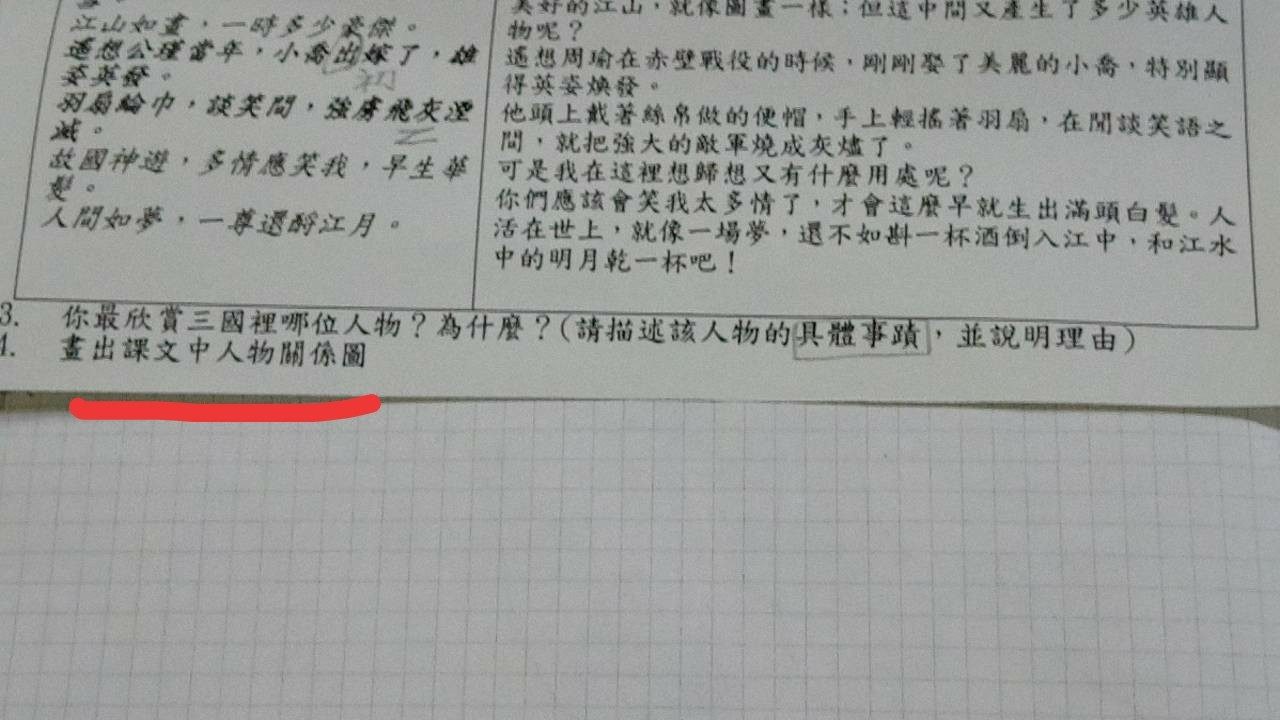 江山如畫，一時多少豪傑。
遙想公瑾當年，小喬出嫁了，雄
姿英發。
初
羽扇綸巾，談笑間，強虜飛灰湮
滅。
故國神遊，多情應笑我，早生華
髮。
人間如夢，一尊還酹江月。
美好的江山，就像圖畫一樣；但這中間又產生了多少英雄人
物呢？
遙想周瑜在赤壁戰役的時候，剛剛娶了美麗的小喬，特別顯
得英姿煥發。
他頭上戴著絲帛做的便帽，手上輕搖著羽扇，在閒談笑語之
間，就把強大的敵軍燒成灰燼了。
可是我在這裡想歸想又有什麼用處呢？
你們應該會笑我太多情了，才會這麼早就生出滿頭白髮。人
活在世上，就像一場夢，還不如斟一杯酒倒入江中，和江水
中的明月乾一杯吧！
3. 你最欣賞三國裡哪位人物？為什麼？（請描述該人物的具體事蹟，並說明理由）
4. 畫出課文中人物關係圖